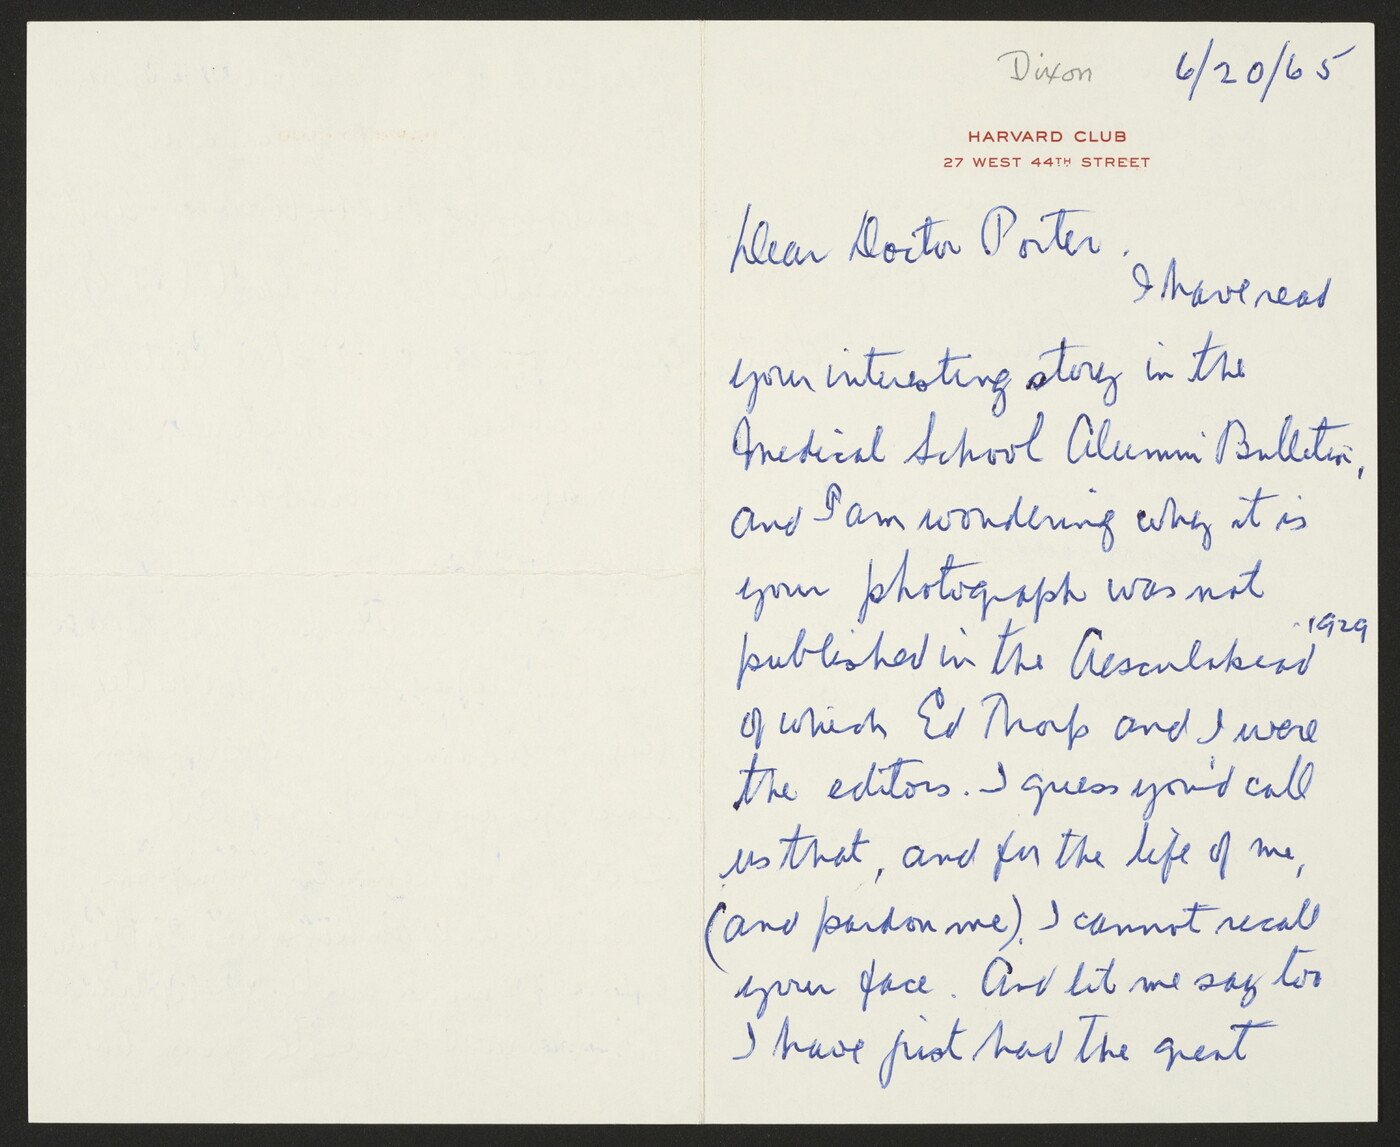 Dixon 6/20/65
HARVARD CLUB
27 WEST 44TH STREET
Dear Doctor Porter.
I have read
your interesting story in the
Medical School Alumni Bulletin,
and I am wondering why it is
your photograph was not
1929
published in the Aesculapiad
of which Ed Thorp and I were
the editors. I guess you'd call
us that, and for the life of me,
(and pardon me). I cannot recall
your face. And let me say too
I have just had the great